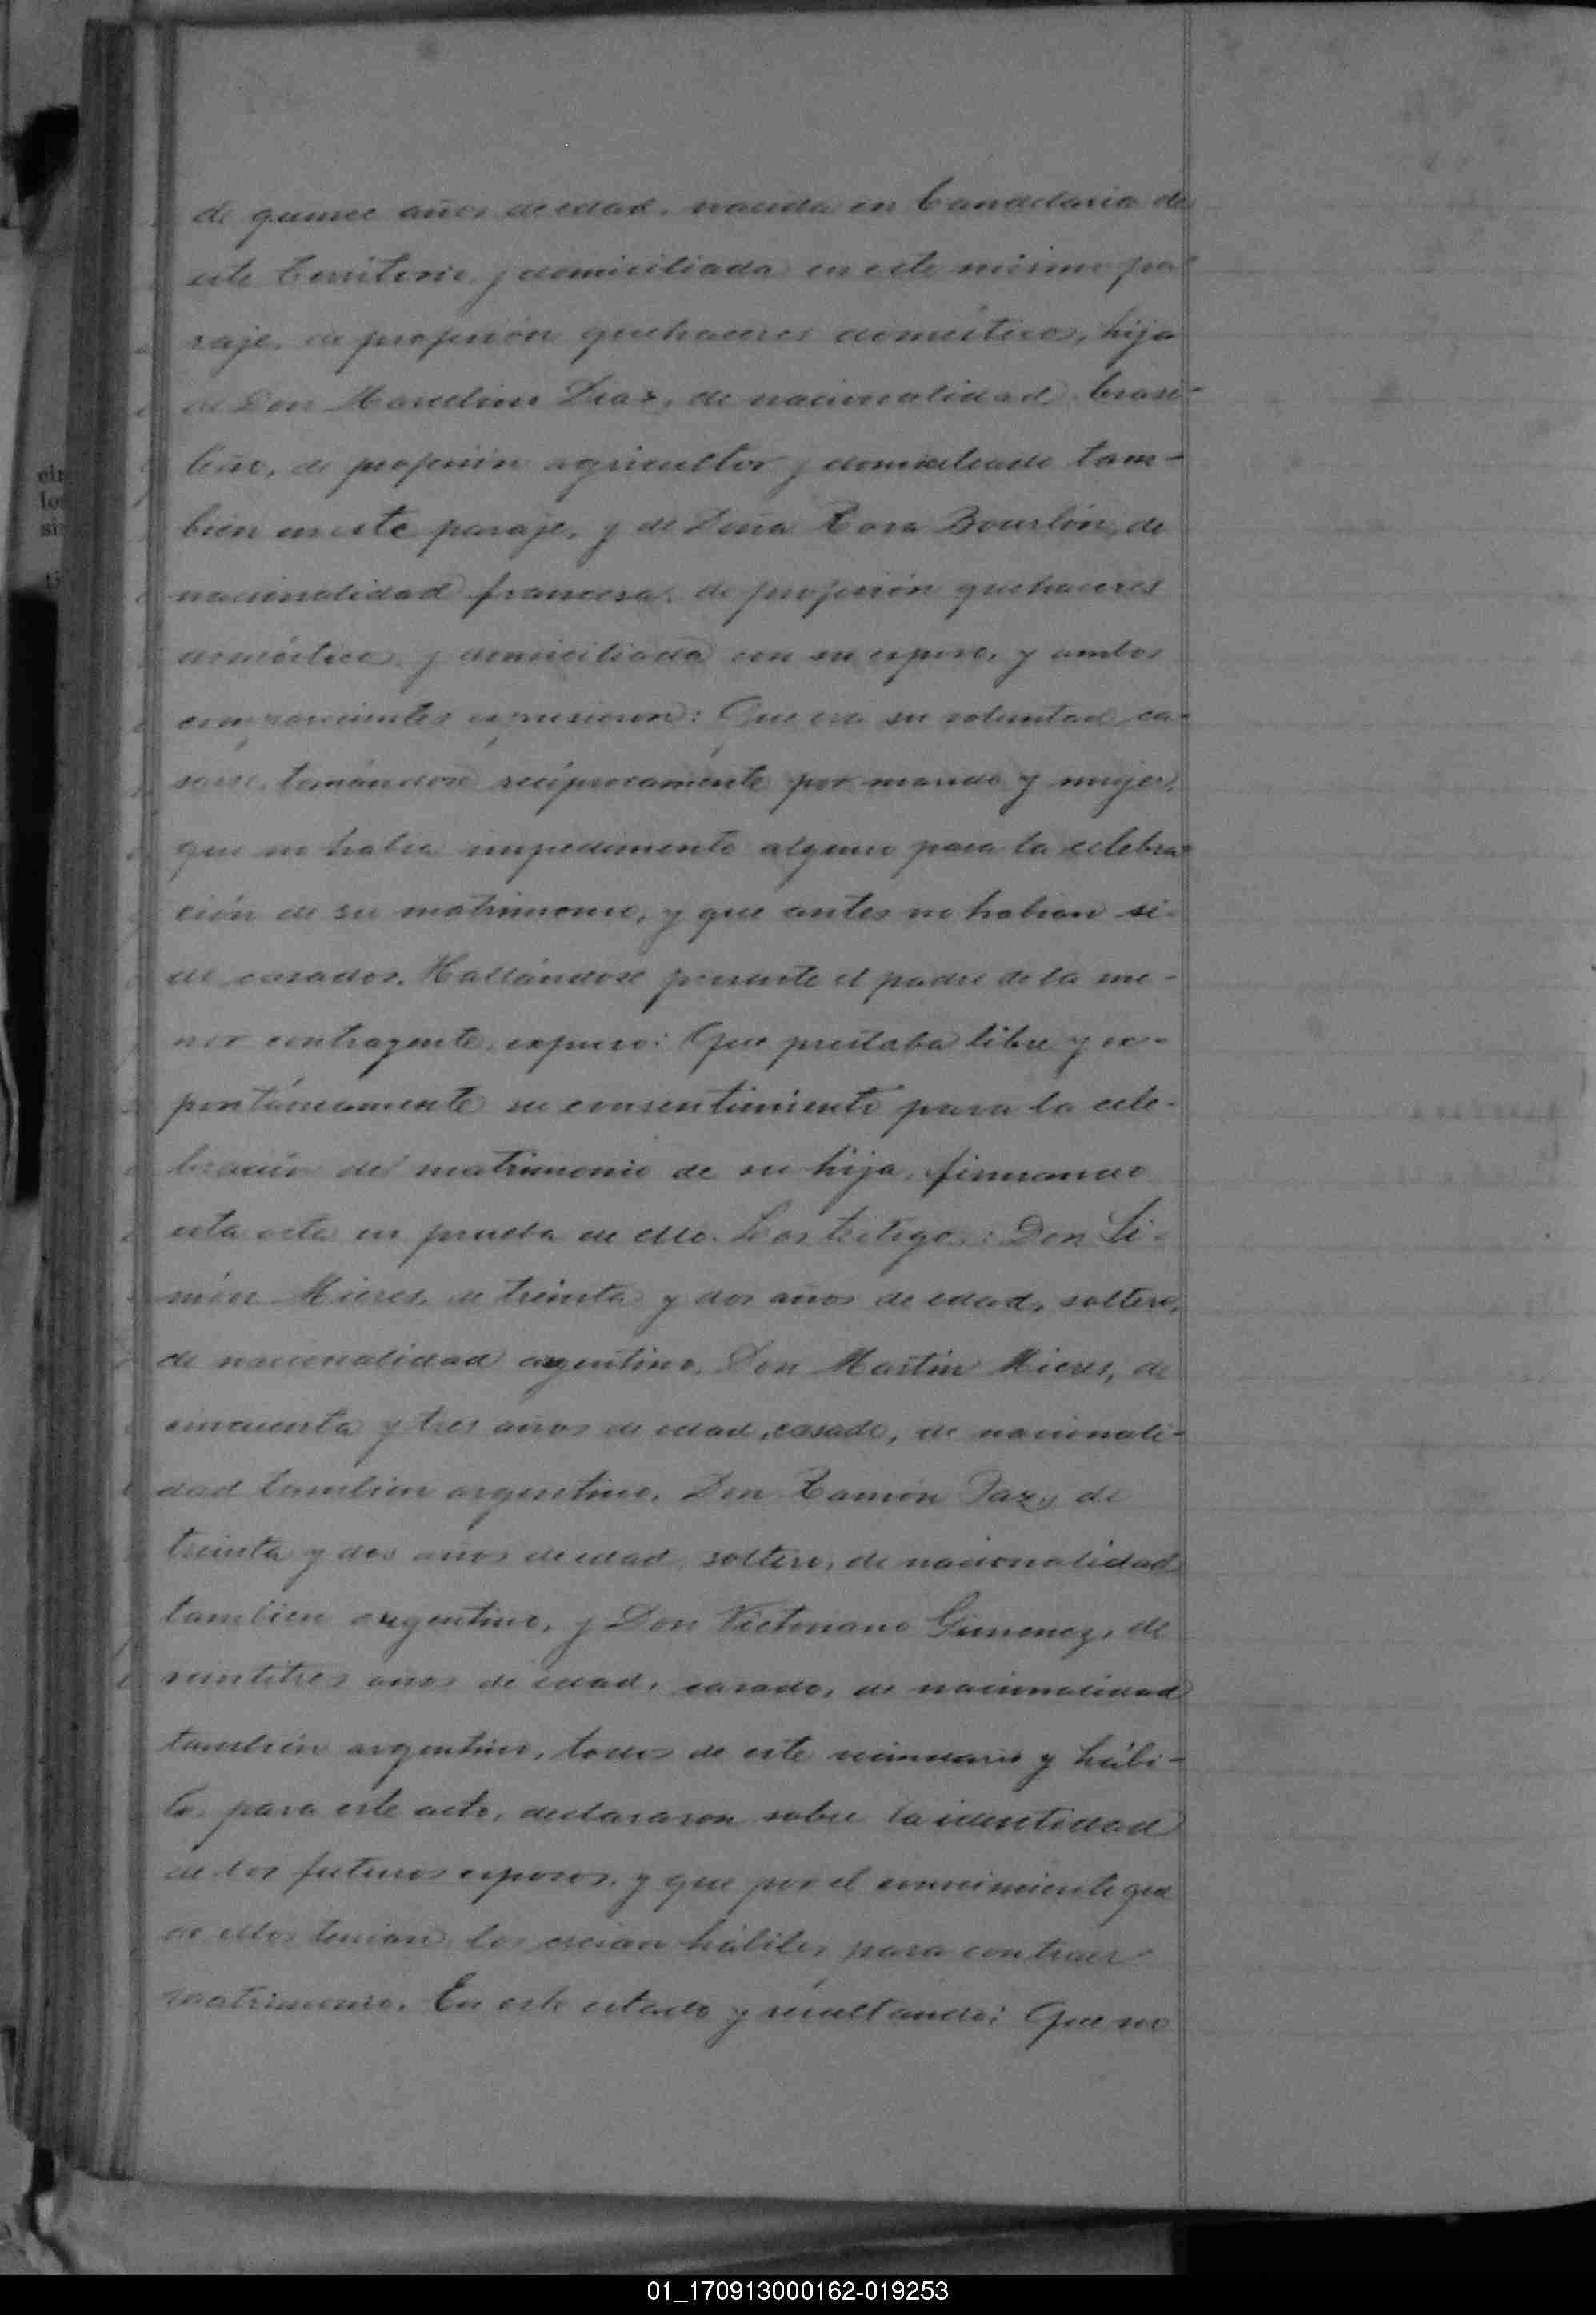 de quince años de edad, nacida en Candelaria de
este Territorio y domiciliada en este mismo pa-
raje, de profesión quehaceres domésticos, hija
de Don Marcelino Diaz, de nacionalidad brasi-
leño, de profesión agricultor y domiciliado tam-
bién en este paraje, y de Doña Rosa Bourlón, de
nacionalidad francesa, de profesión quehaceres
domésticos y domiciliada con su esposo, y ambos
comparecientes expusieron: Que era su voluntad ca-
sarse, tomándose recíprocamente por marido y mujer,
que no habia impedimento alguno para la celebra-
ción de su matrimonio, y que antes no habian si-
do casados. Hallándose presente el padre de la me-
nor contrayente, expuso: Que prestaba libre y es-
pontáneamente su consentimiento para la cele-
bración del matrimonio de su hija, firmando
esta acta en prueba de ello. Los testigos: Don Si-
món Mieres, de treinta y dos años de edad, soltero,
de nacionalidad argentino, Don Martin Mieres, de
cincuenta y tres años de edad, casado, de nacionali-
dad tambien argentino, Don Ramón Paz, de
treinta y dos años de edad, soltero, de nacionalidad
tambien argentino, y Don Victoriano Gimenez, de
veintitres años de edad, casado, de nacionalidad
también argentino, todos de este vecindario y hábi-
les para este acto, declararon sobre la identidad
de los futuros esposos, y que por el conocimiento que
de ellos tenian los creian hábiles para contraer
matrimonio. En este estado y resultando: Que no
01_170913000162-019253